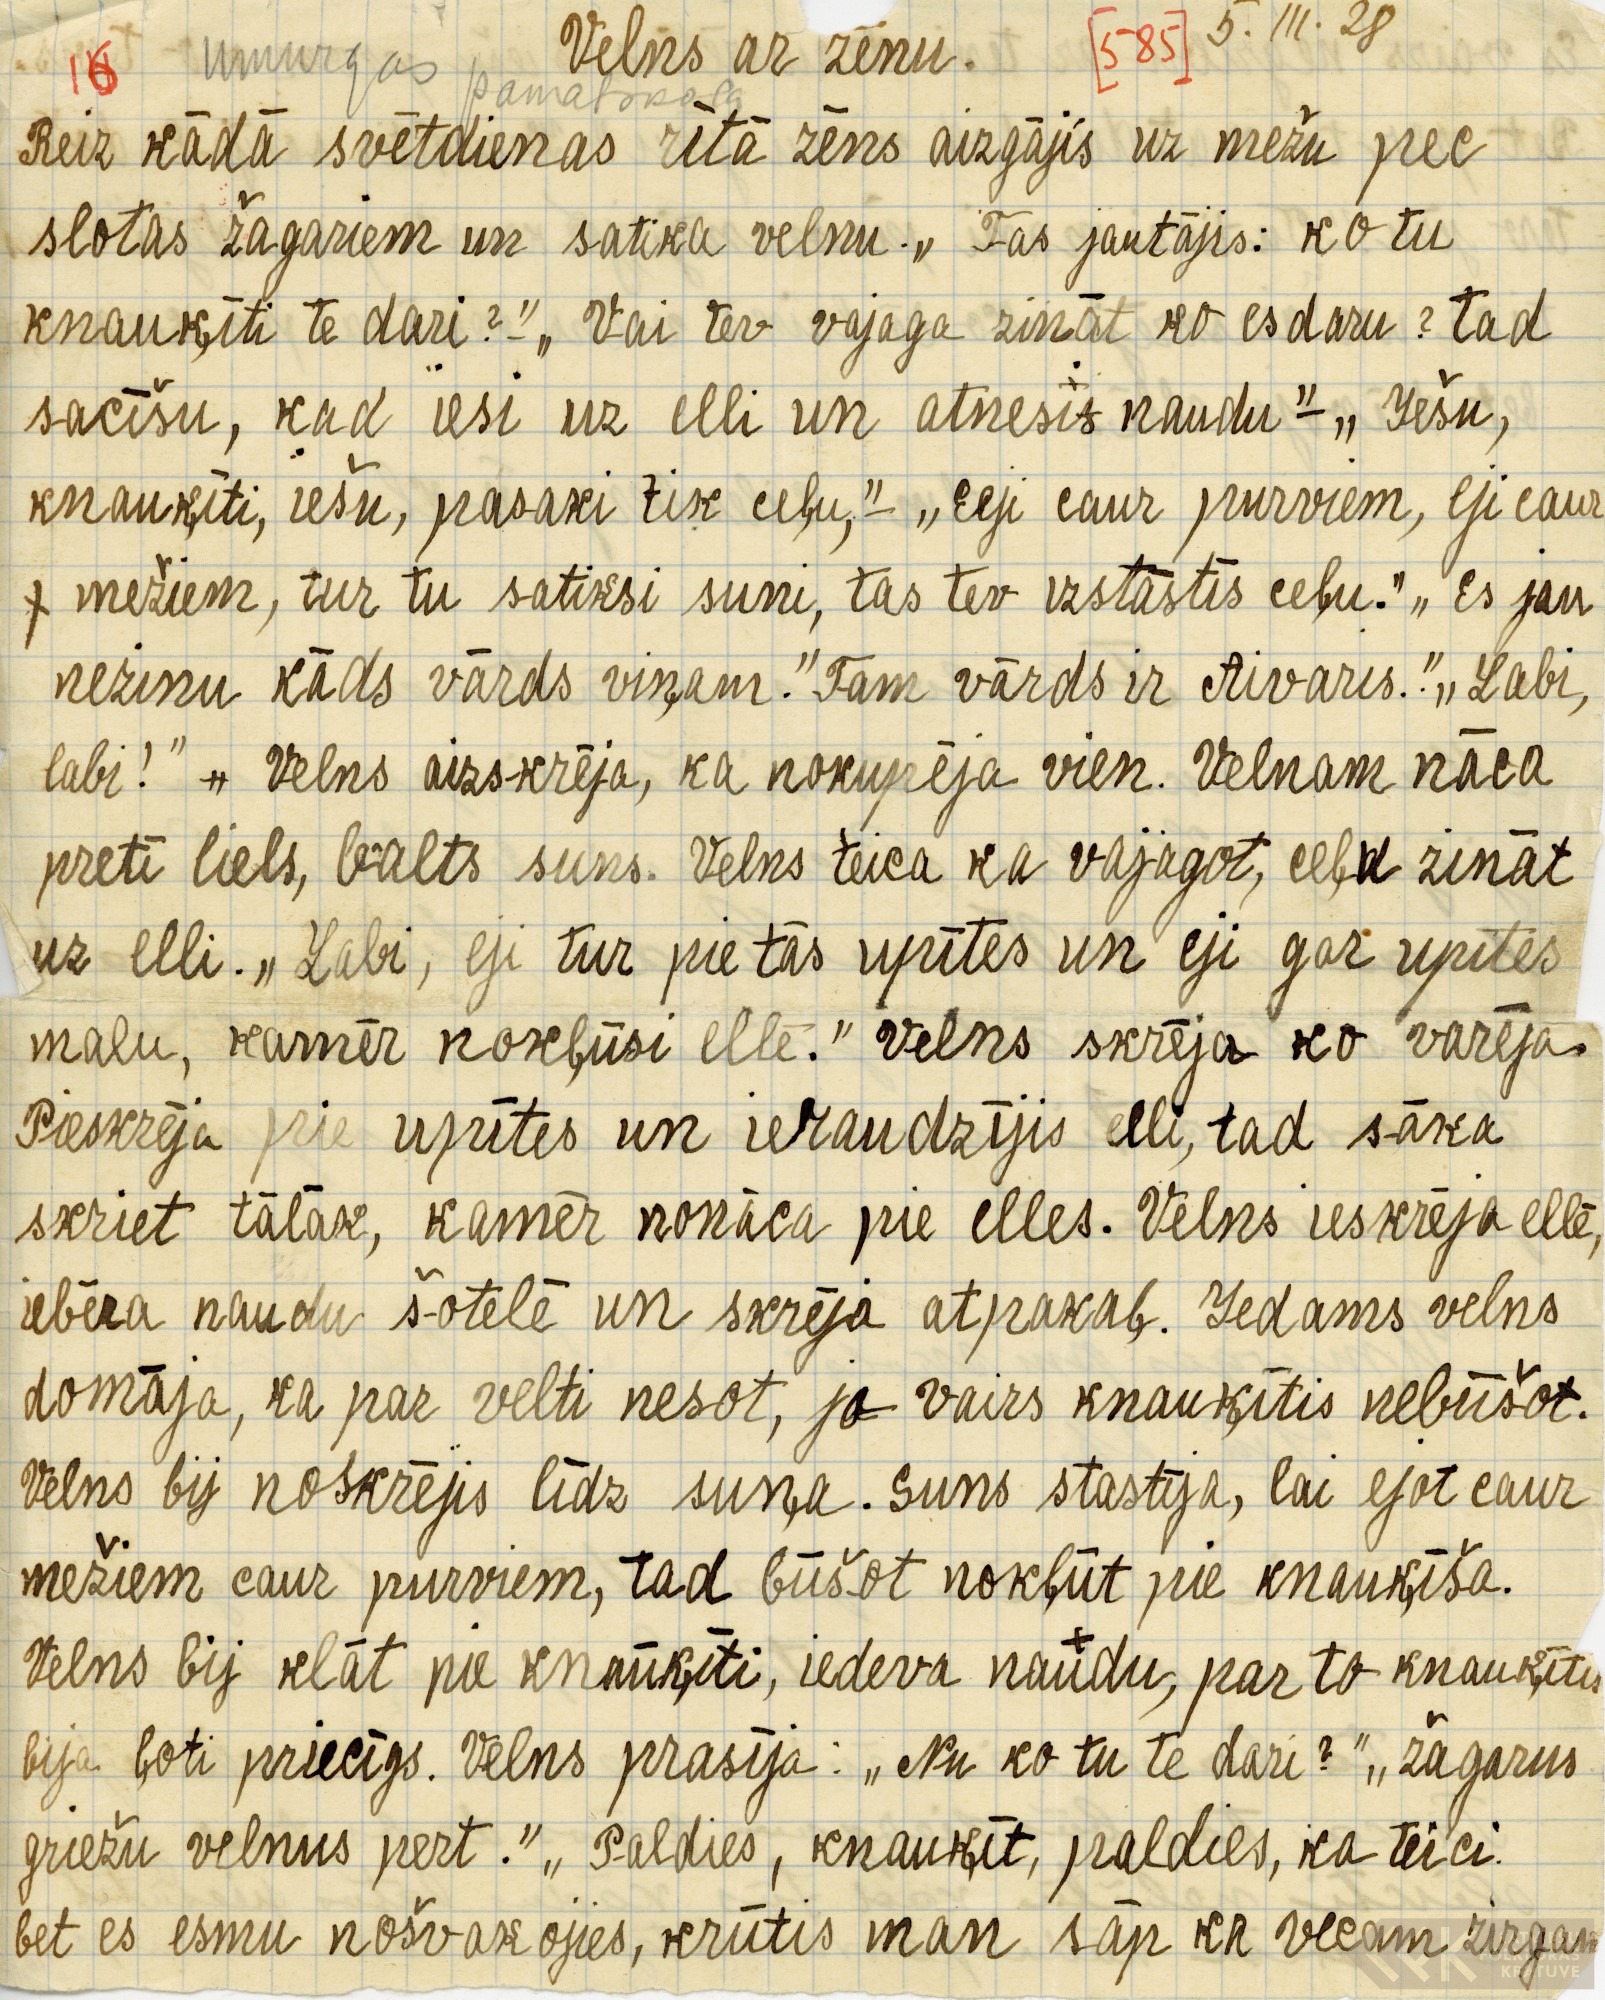 16 Umurgas Velns ar zēnu. [585] 5. III. 28
pamatskola
Reiz kādā svētdienas rītā zēns aizgājis uz mežu pec
slotas žagariem un satika velnu. „ Tas jautājis: ko tu
knauķīti te dari?"- „ Vai tev vajaga zināt ko es daru? tad
sacīšu, kad iesi uz elli un atnesīs naudu"- „ Iešu,
knauķīti, iešu, pasaki tik ceļu,"- „ Eeji caur purviem, eji caur
mežiem, tur tu satiksi suni, tas tev izstāstīs ceļu." „ Es jau
nezinu kāds vārds viņam." Tam vārds ir Aivaris." „ Labi,
labi!" „ Velns aizskrēja, ka nokupēja vien. Velnam nāca
pretī liels, balts suns. Velns teica ka vajagot, ceļu zināt
uz elli. „ Labi, eji tur pie tās upītes un eji gar upītes
malu, kamēr nokļūsi ellē." Velns skrēja ko varēja.
Pieskrēja pie upītes un ieraudzījis elli, tad sāka
skriet tālāk, kamēr nonāca pie elles. Velns ieskrēja ellē,
iebēra naudu šotelē un skrēja atpakaļ. Iedams velns
domāja, ka par velti nesot, jo vairs knauķītis nebūšot.
Velns bij noskrējis līdz suņa. Suns stastīja, lai ejot caur
mežiem caur purviem, tad būšot nokļūt pie knauķīša.
Velns bij klāt pie knauķīti, iedeva naudu, par to knauķītis
bija ļoti priecīgs. Velns prasīja: „ Nu ko tu te dari?" „ žagarus
griežu velnus pert." „ Paldies, knauķīt, paldies, ka teici.
bet es esmu nošvakojies, krūtis man sāp kā vecam zirgam
KRĀTUVE